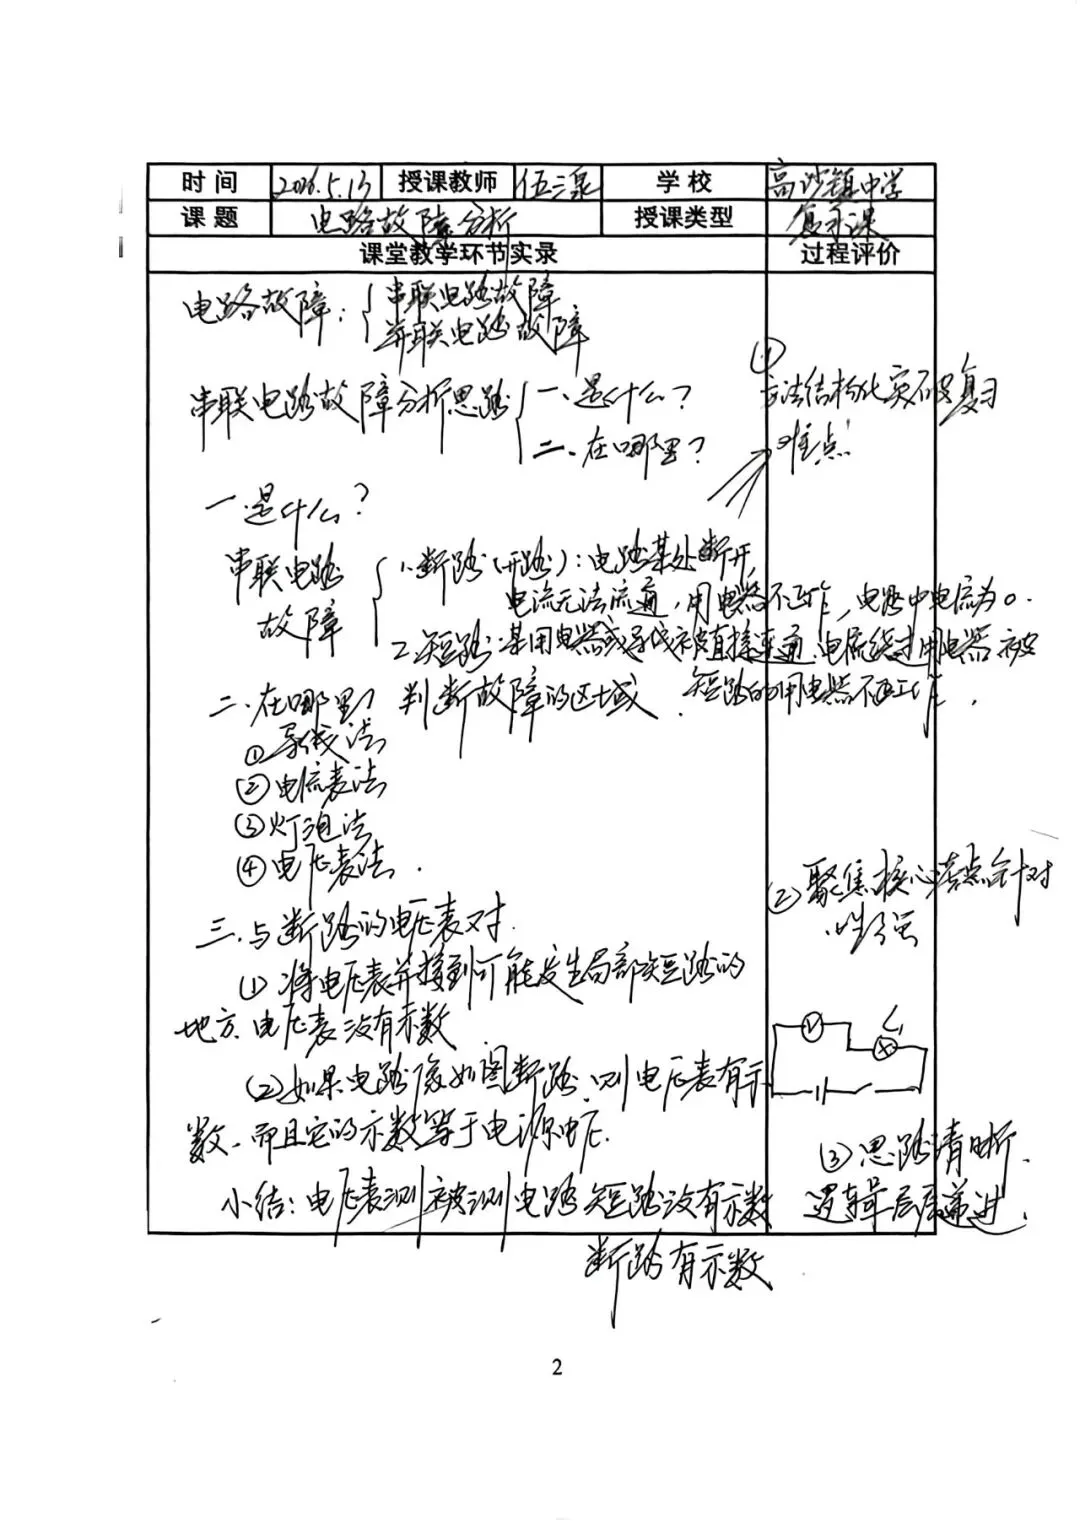 时间 2026.5.13 授课教师 伍三泉 学校 高沙镇中学
课题 电路故障分析 授课类型 复习课
课堂教学环节实录 过程评价
电路故障: 串联电路故障
并联电路故障
串联电路故障分析思路 一、是什么?
二、在哪里?
①
方法结构化突破复习
难点
一、是什么?
串联电路
故障
1、断路(开路):电路某处断开,
电流无法流通,用电器不工作,电路中电流为0.
2、短路:某用电器或导线被直接连通、电流绕过用电器、被
短路的用电器不工作.
二、在哪里? 判断故障的区域
①导线法
②电流表法
③灯泡法
④电压表法.
② 聚焦核心考点针对
性强
三、与断路的电压表对.
(1) 将电压表并接到可能发生局部短路的
地方、电压表没有示数
V L
(2)如果电路像如图断路,则电压表有示
数、而且它的示数等于电源电压.
③思路清晰、
逻辑层层递进.
小结:电压表测被测电路短路没有示数
断路有示数
2